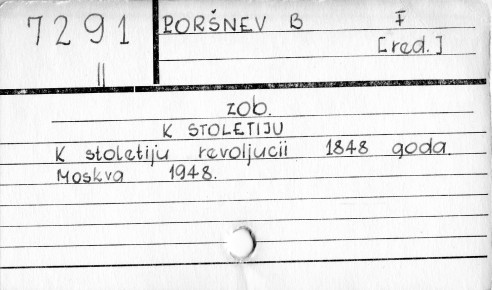 7291
II
PORŠNEV B F
[red.]
zob.
K STOLETIJU
K stoletiju revoljucii 1848 goda
Moskva 1948.